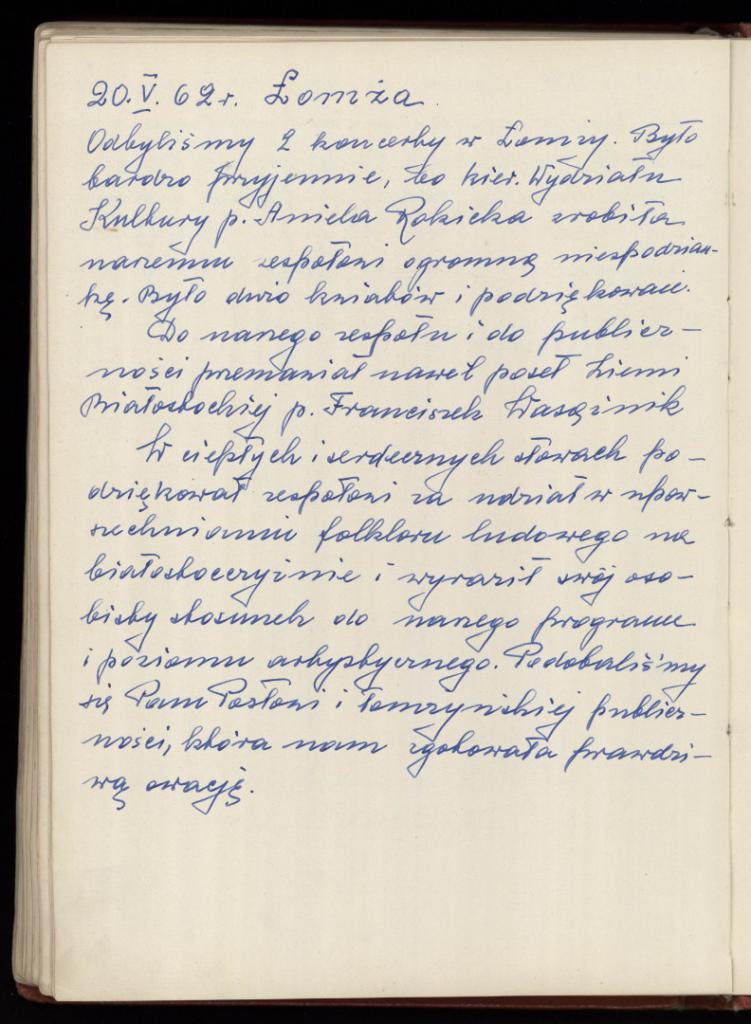 20.V.62r. Łomża
Odbyliśmy 2 koncerty w Łomży. Było
bardzo przyjemnie, bo kier. Wydziału
Kultury p. Aniela Rokicka zrobiła
naszemu zespołowi ogromną niespodzian-
kę. Było dużo kwiatów i podziękowań.
Do naszego zespołu i do publicz-
ności przemawiał nawet poseł Ziemi
Białostockiej p. Franciszek Wasążnik
W ciepłych i serdecznych słowach po-
dziękował zespołowi za udział w upow-
szechnianiu folkloru ludowego na
białostocczyźnie i wyraził swój oso-
bisty stosunek do naszego programu
i poziomu artystycznego. Podobaliśmy
się Panu Posłowi i łomżyńskiej publicz-
ności, która nam zgotowała prawdzi-
wą owację.